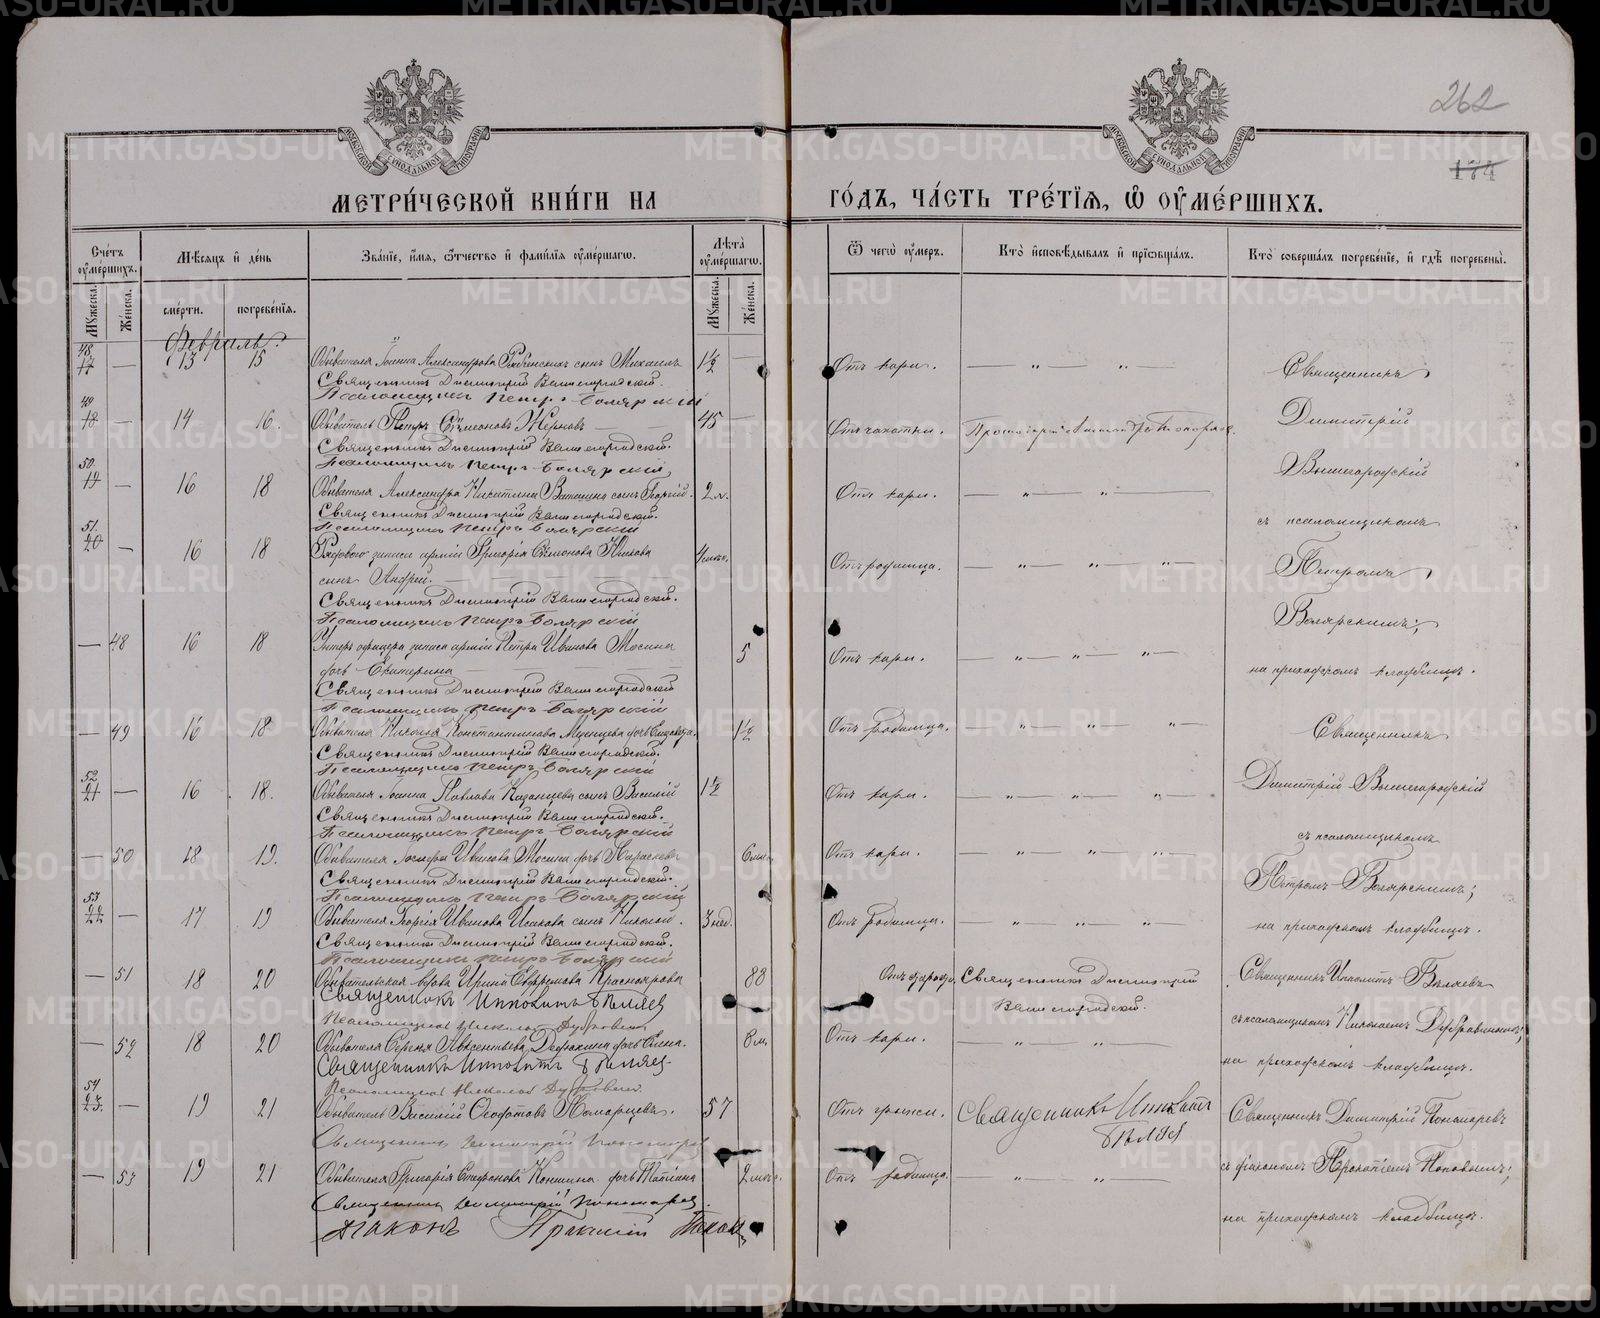 262
174
МЕТРИЧЕСКОЙ КНИГИ НА ГОДЪ, ЧАСТЬ ТРЕТІЯ, Ѡ ОУМЕРШИХЪ.
Счетъ оумершихъ.
Мѣсяцъ и день
Званіе, имя, ѿчество и фамилія оумершагѡ.
Лѣта оумершагѡ.
Ѿ чегѡ оумеръ.
Кто исповѣдывалъ и пріѡбщалъ.
Кто совершалъ погребеніе, и гдѣ погребены.
Мужеска. Женска.
смерти. погребенія.
Мужеска. Женска.
Февраль.
48 17 — 13 15 Обывателя Іоанна Александрова сынъ Михаилъ 1½ — Отъ кори. — „ — „ — Священникъ
Священникъ Димитрій Вышегородскій.
Псаломщикъ Петръ Боярскій
49 18 — 14 16. Обыватель Петръ Сѵмеоновъ — 45 — Отъ чахотки. Димитрій
Священникъ Димитрій Вышегородскій.
Псаломщикъ Петръ Боярскій
50 19 — 16 18 Обывателя Александра Никитина сынъ Георгій. 2 м. Отъ кори. — „ — „ — Вышегородскій
Священникъ Димитрій Вышегородскій.
Псаломщикъ Петръ Боярскій
съ псаломщикомъ
51 20 — 16 18 Рядового запаса арміи Григорія Сѵмеонова
сынъ Андрей. Отъ родимца. — „ — „ — „ — Петромъ
Священникъ Димитрій Вышегородскій.
Псаломщикъ Петръ Боярскій
Боярскимъ;
— 48 16 18 Унтеръ офицера запаса арміи Петра Иванова Мосина
дочь Екатерина 5 Отъ кори. — „ — „ — „ — на приходскомъ кладбищѣ.
Священникъ Димитрій Вышегородскій
Псаломщикъ Петръ Боярскій
— 49 16 18 Обывателя Константинова дочь 1½ Отъ родимца. — „ — „ — „ — Священникъ
Священникъ Димитрій Вышегородскій.
Псаломщикъ Петръ Боярскій
52 21 — 16 18. Обывателя Іоанна Павлова Казанцева сынъ Василій 1½ Отъ кори. — „ — „ — „ — Димитрій Вышегородскій
Священникъ Димитрій Вышегородскій.
Псаломщикъ Петръ Боярскій
съ псаломщикомъ
— 50 18 19. Обывателя Іосифа Иванова Мосина дочь Параскева Отъ кори. — „ — „ — „ — Петромъ Боярскимъ;
Священникъ Димитрій Вышегородскій.
Псаломщикъ Петръ Боярскій
53 22 — 17 19 Обывателя Георгія Иванова Исакова сынъ Николай. 3 нед. Отъ родимца. — „ — „ — „ — на приходскомъ кладбищѣ.
Священникъ Димитрій Вышегородскій.
Псаломщикъ Петръ Боярскій
— 51 18 20 Обывательская вдова Ирина Евфремова Красноярова 88 Священникъ Димитрій Вышегородскій. Священникъ Ипполитъ Бѣляевъ
Священникъ Ипполитъ Бѣляев
Псаломщикъ Николай Дубровинъ
съ псаломщикомъ Николаемъ Дубровинымъ;
— 52 18 20 Обывателя Сергія Авксентьева дочь Елена. 8 м. Отъ кори. — „ — „ — на приходскомъ кладбищѣ.
Священникъ Ипполитъ Бѣляев.
Псаломщикъ Николай Дубровинъ
54 23. — 19 21 Обыватель Василій Ѳеодотовъ Комарцевъ. 57 Отъ грыжи. Священникъ Ипполитъ Бѣляев Священникъ Димитрій Пономаревъ
Священникъ Димитрій Пономарев
съ діакономъ Прокопіемъ Поповымъ;
— 53 19 21 Обывателя Григорія Стефанова Коншина дочь Татіана Отъ родимца. — „ — „ — на приходскомъ кладбищѣ.
Священникъ Димитрій Пономарев.
Діаконъ Прокопій Попов
METRIKI.GASO-URAL.RU